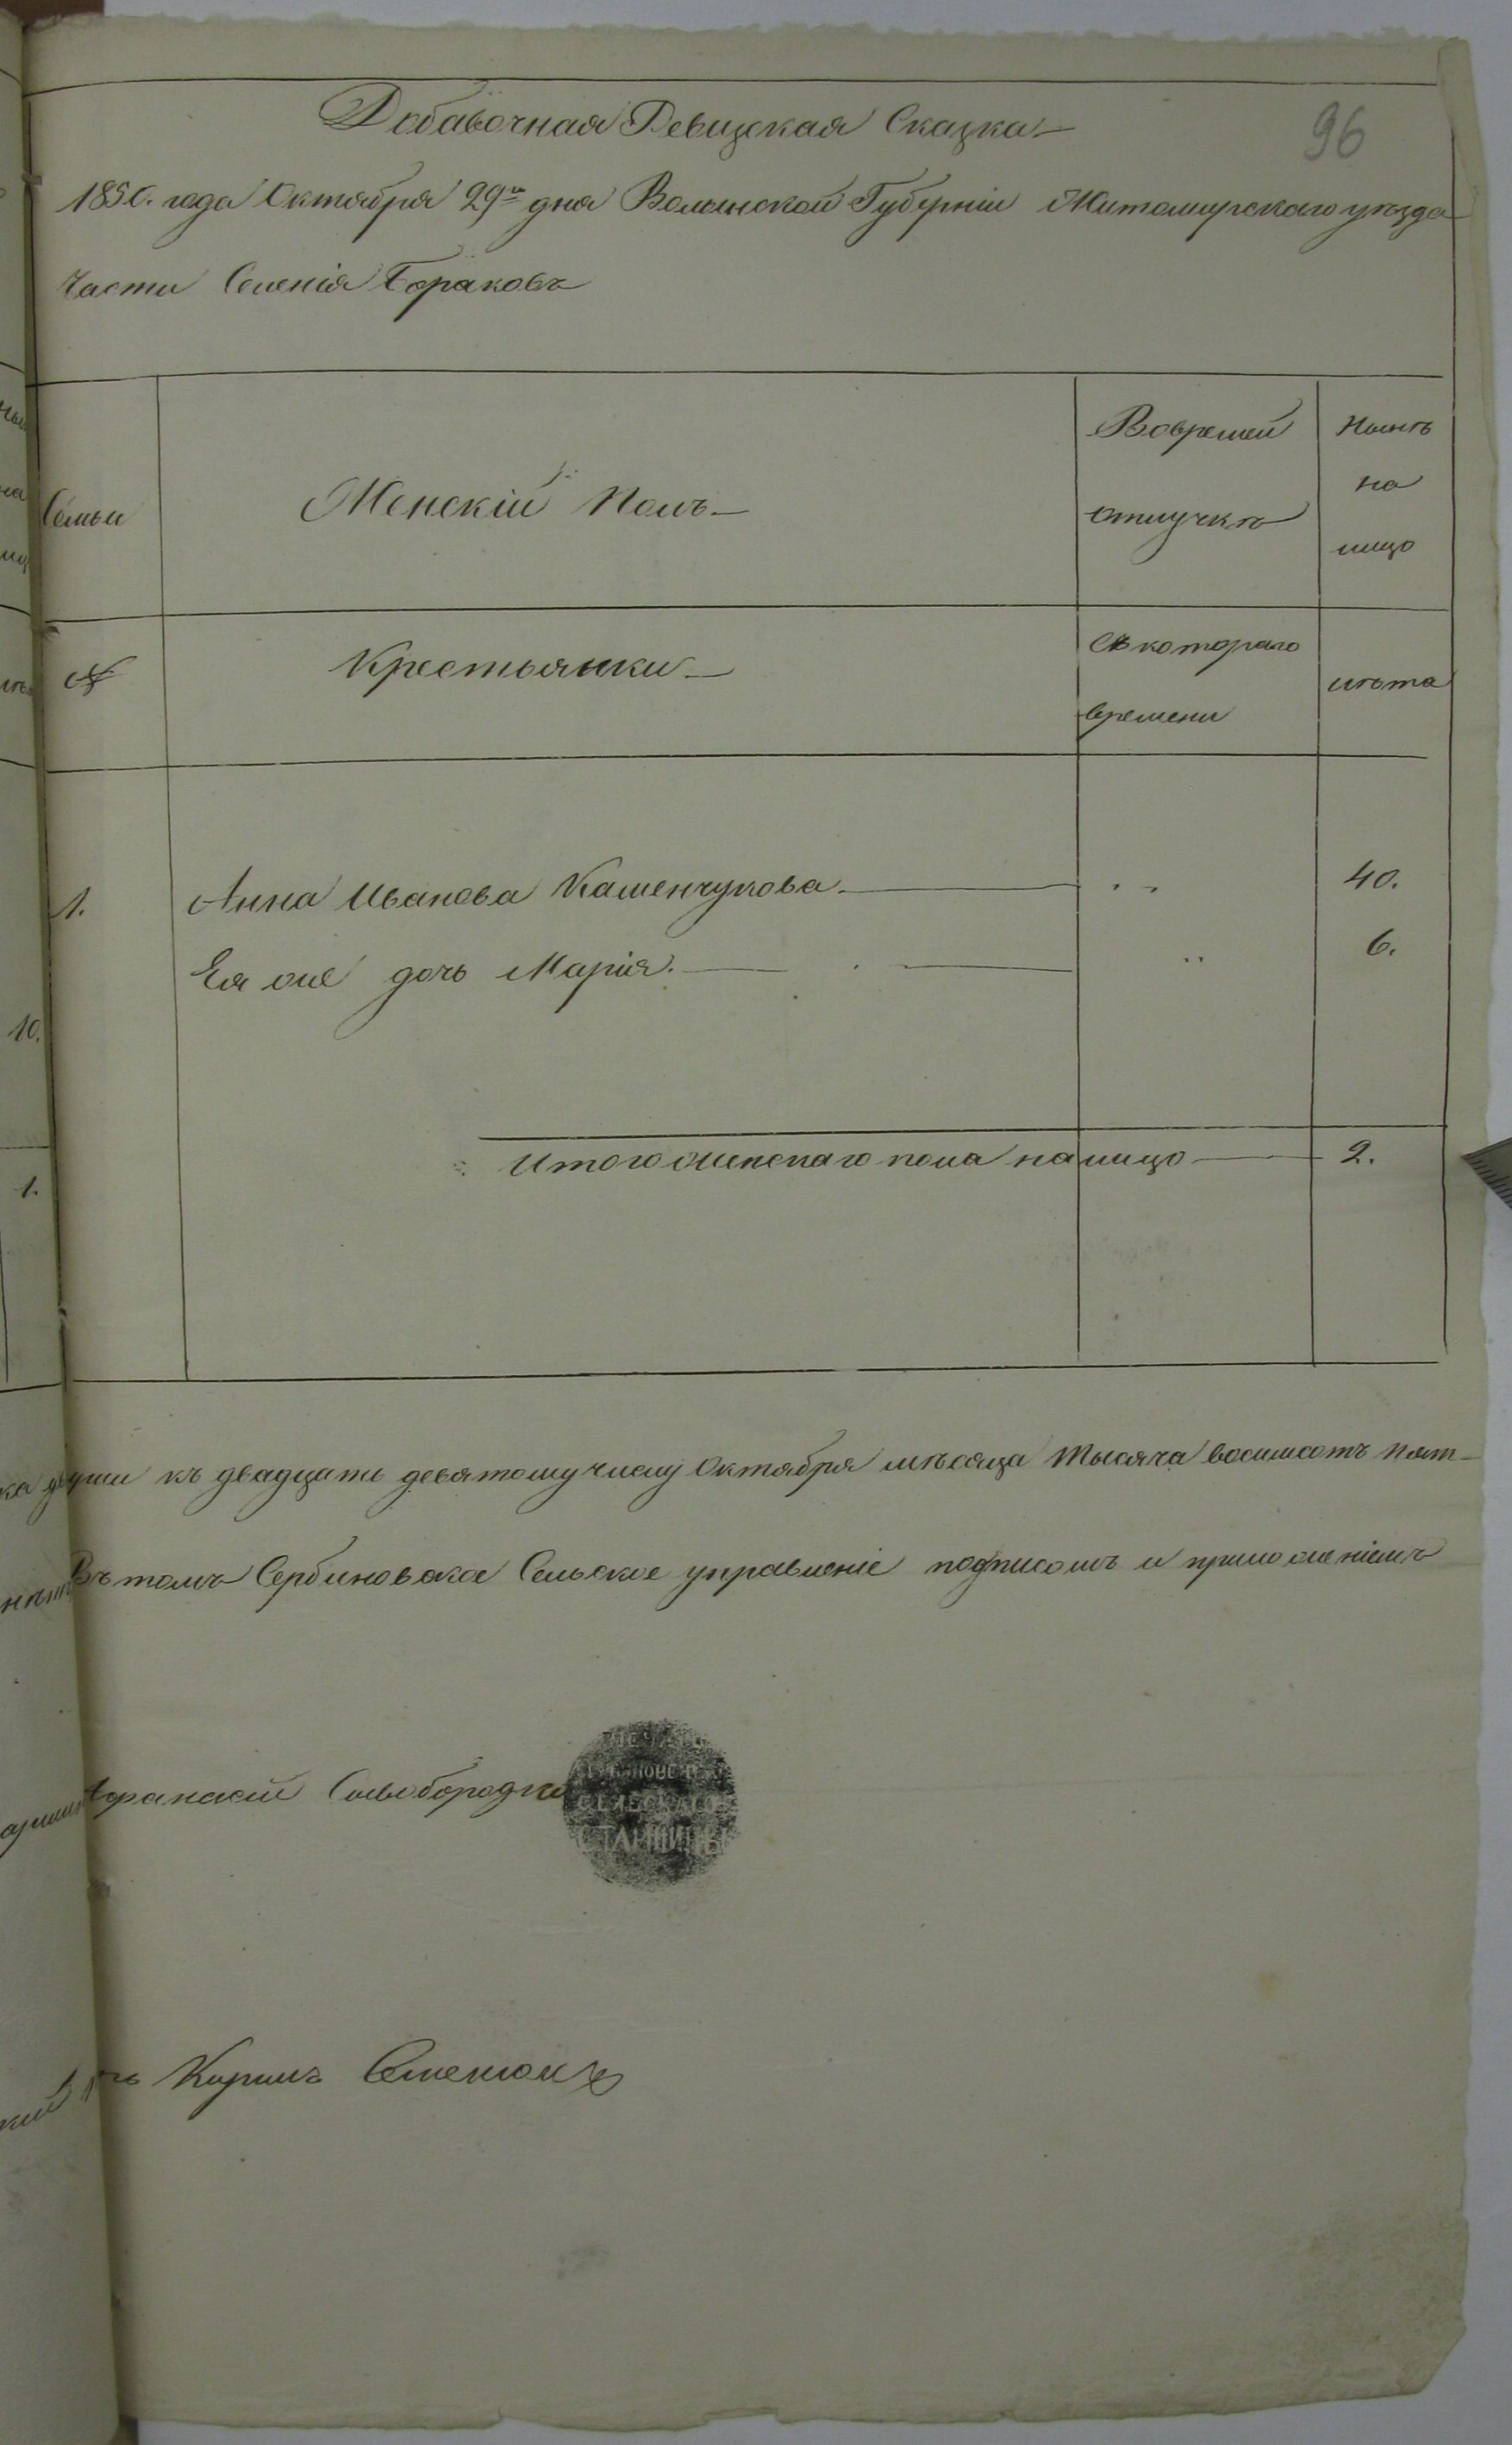 Добавочная Ревизская Сказка
96
1850. года Октября 29го дня Волынской Губерніи Житомирскаго уѣзда
части Селенія Бораковъ
Семьи
Женскій Полъ
Вовремен
отлучкѣ
Нынѣ
на
лицо
№
Крестьянки
Съ котораго
времени
лѣта
1. Анна Иванова Каменчукова 40.
Ея же дочь Марія. 6.
10.
Итого женскаго пола на лицо 2.
1.
души къ двадцать девятому числу Октября мѣсяца тысяча восимсотъ пят-
Въ томъ Сербиновское Сельское управленіе подписомъ и приложеніемъ
Афанасій Сивобородко
СЕЛЬСКАГО
СТАРШИНЫ
Кирилъ Семенюкъ